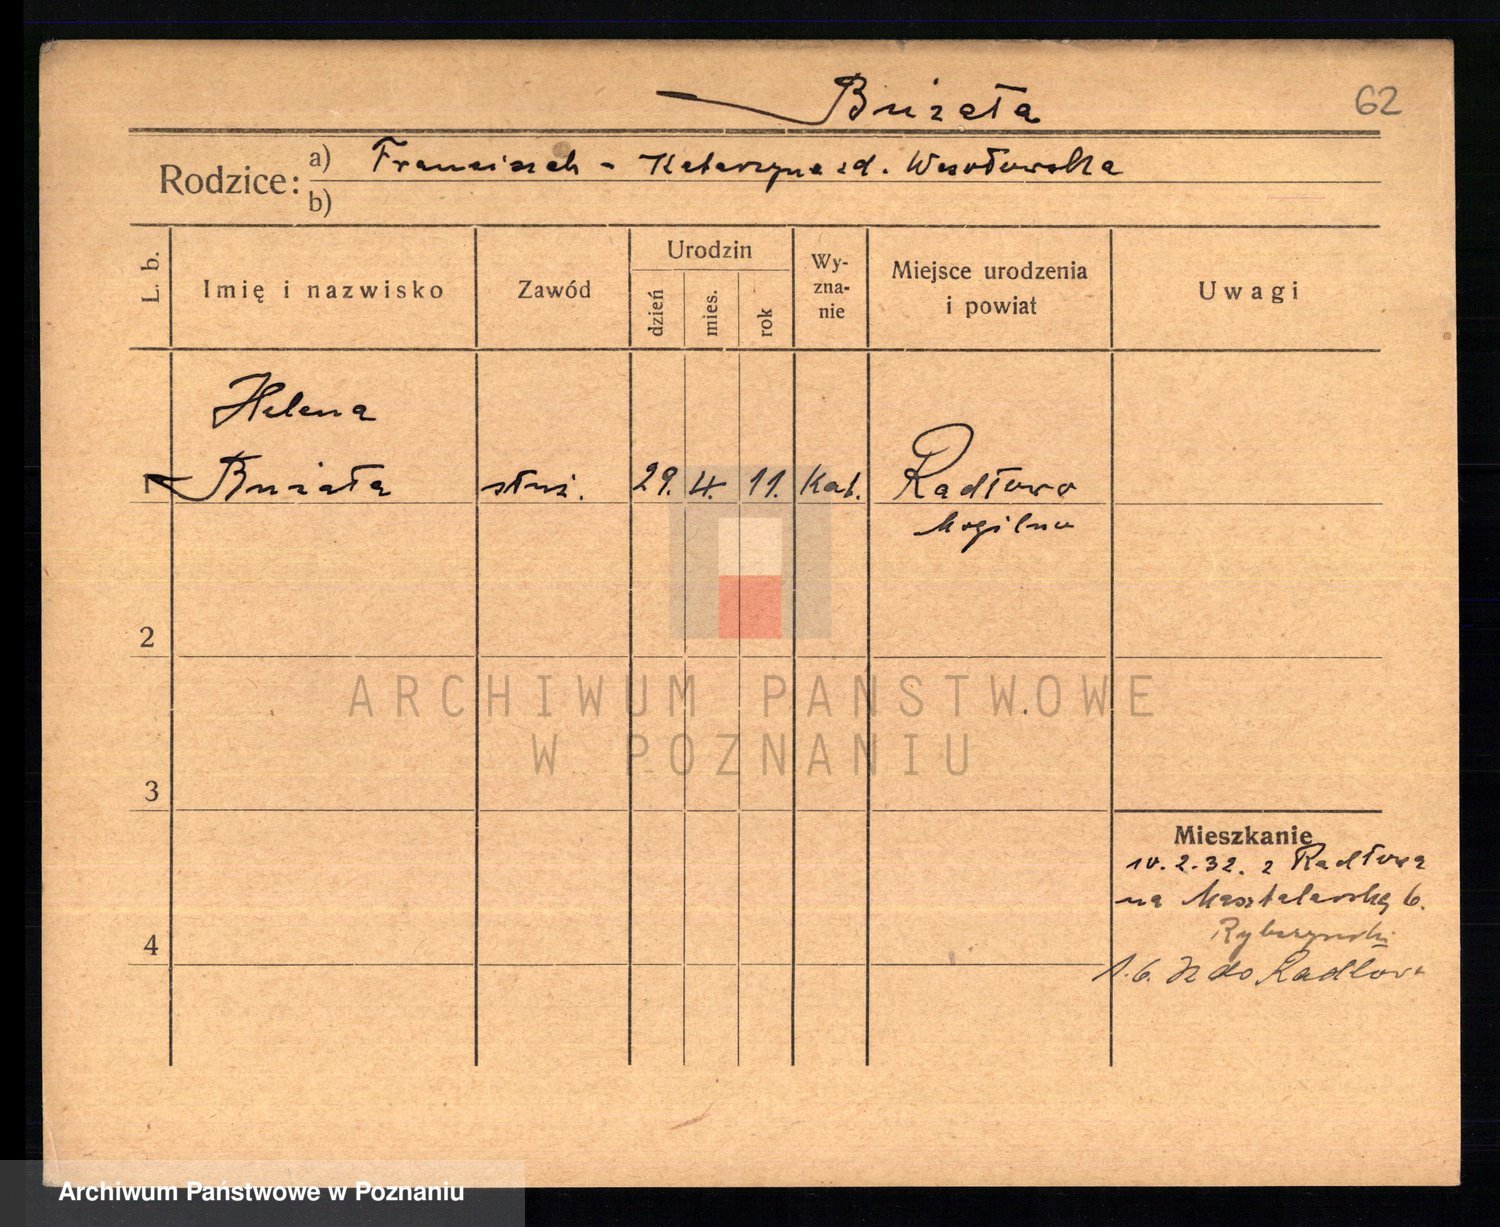 Bużała
62
Rodzice: a) Franciszek - Katarzyna zd. Wesołowska
b)
L. b.
Imię i nazwisko
Zawód
Urodzin
dzień
mies.
rok
Wy-
zna-
nie
Miejsce urodzenia
i powiat
Uwagi
Helena
1 Bużała służ. 29. 4. 11. Kat. Radłowo
Mogilno
2
ARCHIWUM PAŃSTWOWE
W POZNANIU
3
Mieszkanie
10.2.32. z Radłowa
na Masztalarską 6.
4
1.6. do Radłowa
Archiwum Państwowe w Poznaniu